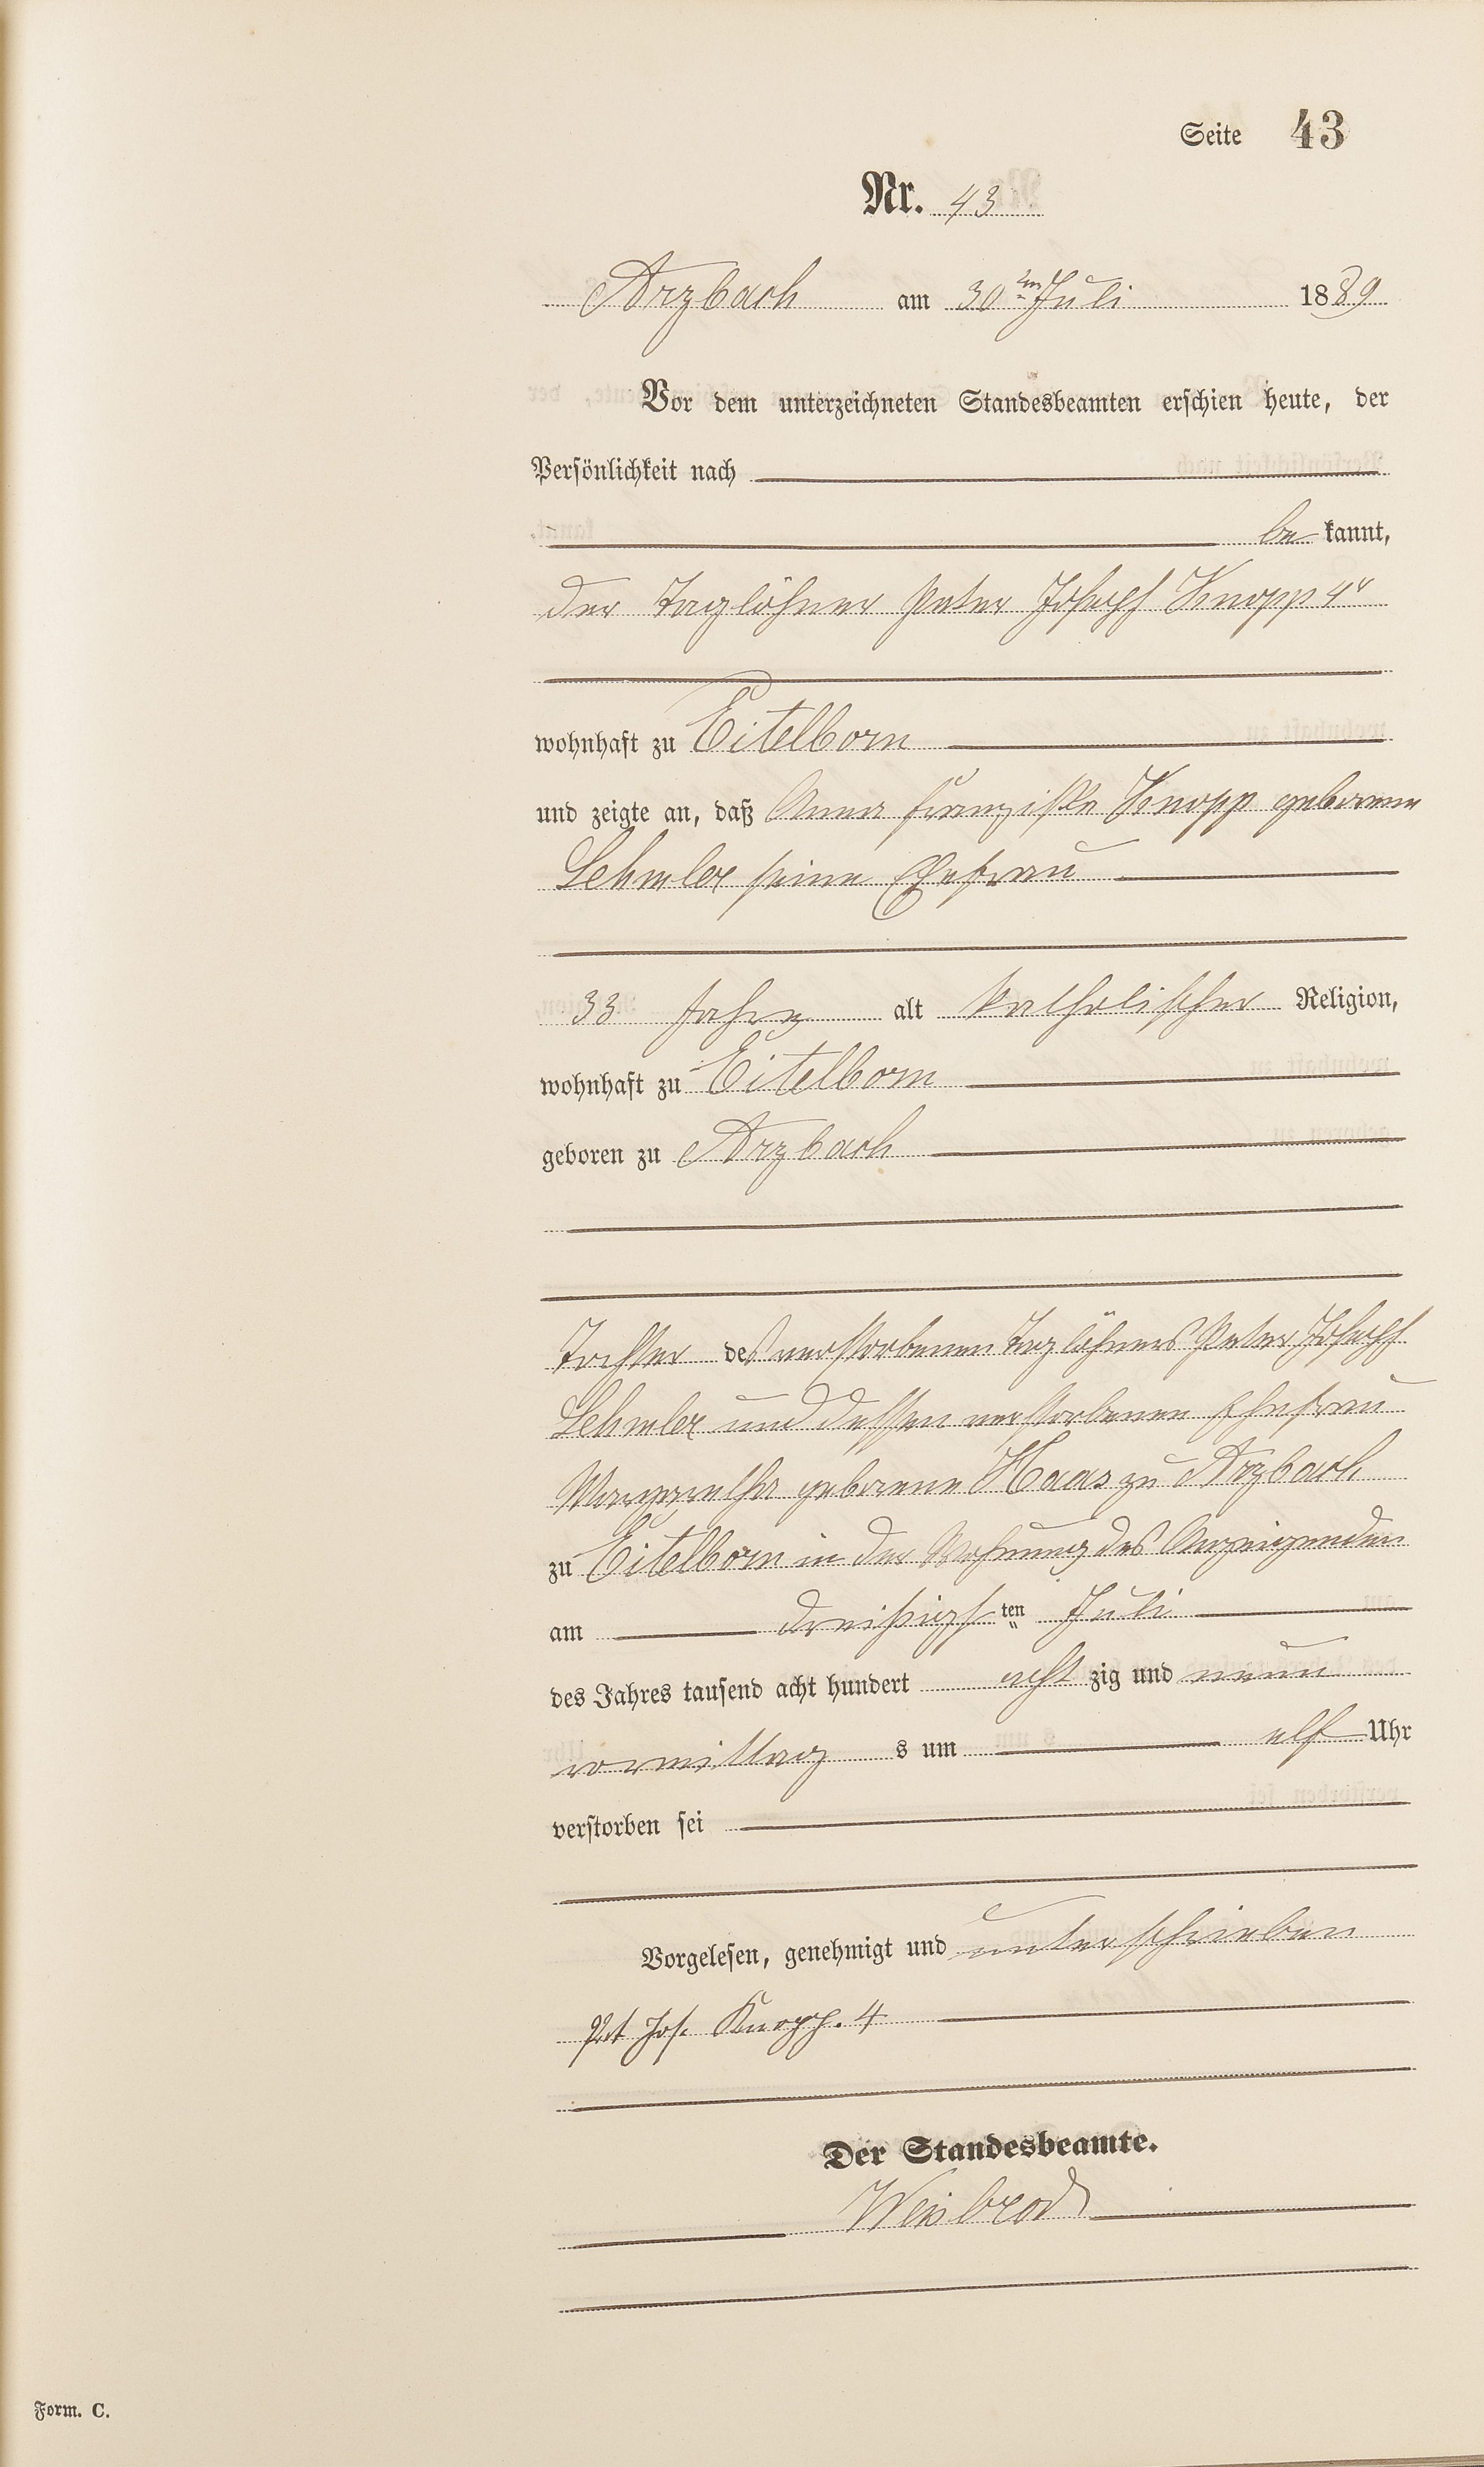 Seite 43
Nr. 43
Arzbach am 30ten Juli 1889
Vor dem unterzeichneten Standesbeamten erschien heute, der
Persönlichkeit nach
be kannt,
der Taglöhner Peter Joseph Knopp 4r
wohnhaft zu Eitelborn
und zeigte an, daß Anna Franziska Knopp geborene
Lehmler seine Ehefrau
33 Jahre alt katholischer Religion,
wohnhaft zu Eitelborn
geboren zu Arzbach
Tochter des verstorbenen Taglöhners Peter Joseph
Lehmler und dessen verstorbenen Ehefrau
Margaretha geborene Haas zu Arzbach
zu Eitelborn in der Wohnung des Anzeigenden
am dreißigsten Juli
des Jahres tausend acht hundert acht zig und neun
vormittag s um elf Uhr
verstorben sei
Vorgelesen, genehmigt und unterschrieben
Pet Jos. Knopp. 4
Der Standesbeamte.
Weisbrod
Form. C.